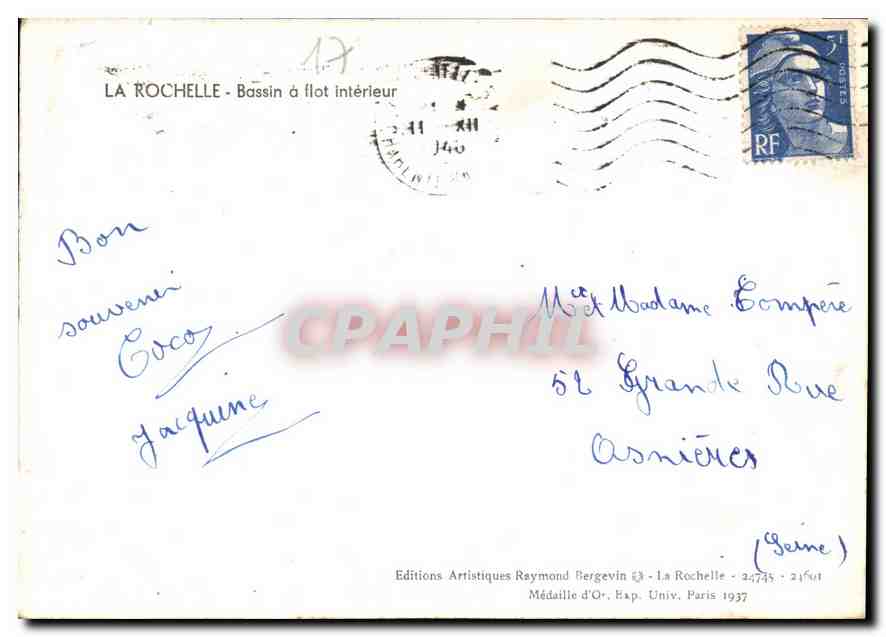 17
LA ROCHELLE - Bassin à flot intérieur
11 XII
5F
POSTES
RF
Bon
souvenir
Coco
Jacquine
CPAPHIL
Mr et Madame Compère
52 Grande Rue
Asnières
(Seine)
Editions Artistiques Raymond Bergevin - La Rochelle - 24745 - 24601
Médaille d'Or, Exp. Univ. Paris 1937